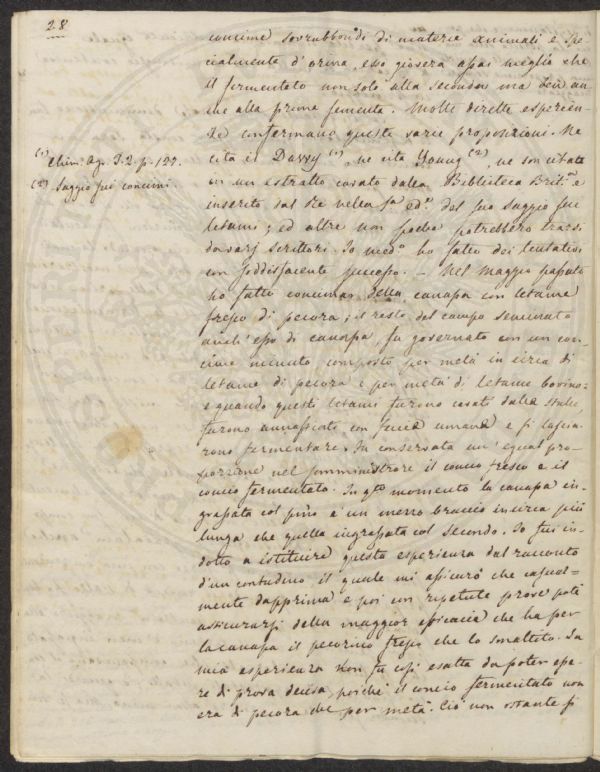 28
concime sovrabbondi di materie animali e spe-
cialmente d'orina, esso gioserà assai meglio che
il fermentato non solo alla seconda ma ben an-
che alla prima sementa. Molte dirette esperien-
ze confermano queste varie proposizioni. Ne
cita il Davvy (1), ne cita Young (2), ne son citate
(1) Chim. Ag. T. 2. p. 127.
(2) Saggio sui concimi.
in un estratto cavato dalla Biblioteca Brit.a e
inserito dal Re nella 3a ed.e del suo saggio sui
letami; ed altre non poche potrebbero trarsi
da varj scrittori. Io med.o ho fatto dei tentativi
con soddisfacente successo. — Nel Maggio passato
ho fatto concimar della canapa con letame
fresco di pecora; il resto del campo seminato
anch'esso di canapa, fu governato con un con-
cime minuto composto per metà in circa di
letame di pecora e per metà di letame bovino:
e quando questi letami furono cavati dalle stalle,
furono annaffiati con feccie umane e si lascia-
rono fermentare. Fu conservata un'egual pro-
porzione nel somministrare il concio fresco e il
concio fermentato. In q.to momento la canapa in-
grassata col primo è un mezzo braccio in circa più
lunga che quella ingrassata col secondo. Io fui in-
dotto a istituire questa esperienza dal racconto
d'un contadino il quale mi assicurò che casual-
mente dapprima e poi con ripetute prove potè
assicurarsi della maggior efficacia che ha per
la canapa il pecorino fresco che lo smaltito. La
mia esperienza non fu così esatta da poter esse-
re di prova decisa, poichè il concio fermentato non
era di pecora che per metà. Ciò non ostante si